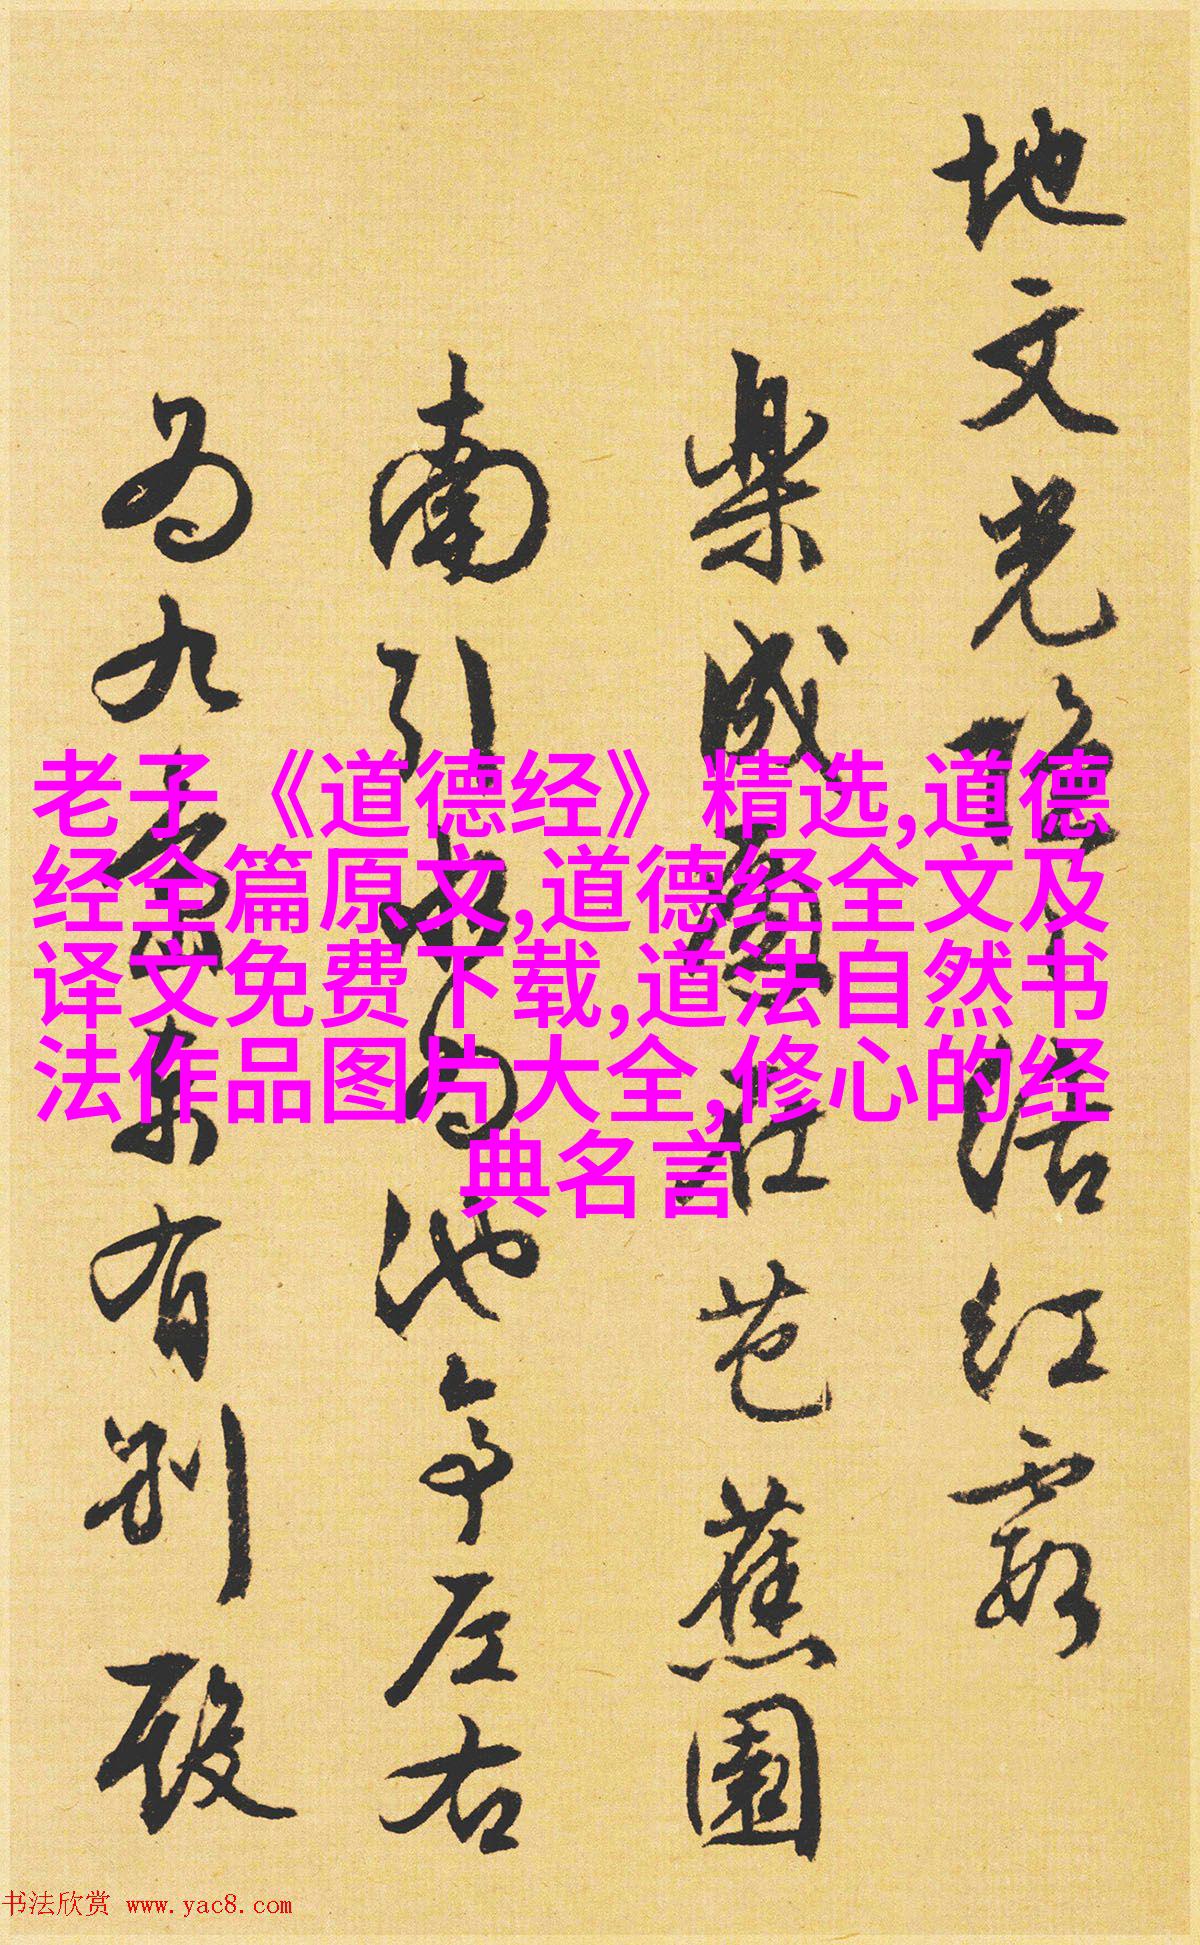 地文光隱に活红霞
樂成南莊芭蕉園
南引水為池亭左右
為九畝東有别殿
老子《道德经》精选,道德
经全篇原文,道德经全文及
译文免费下载,道法自然书
法作品图片大全,修心的经
典名言
书法欣赏 www.yac8.com